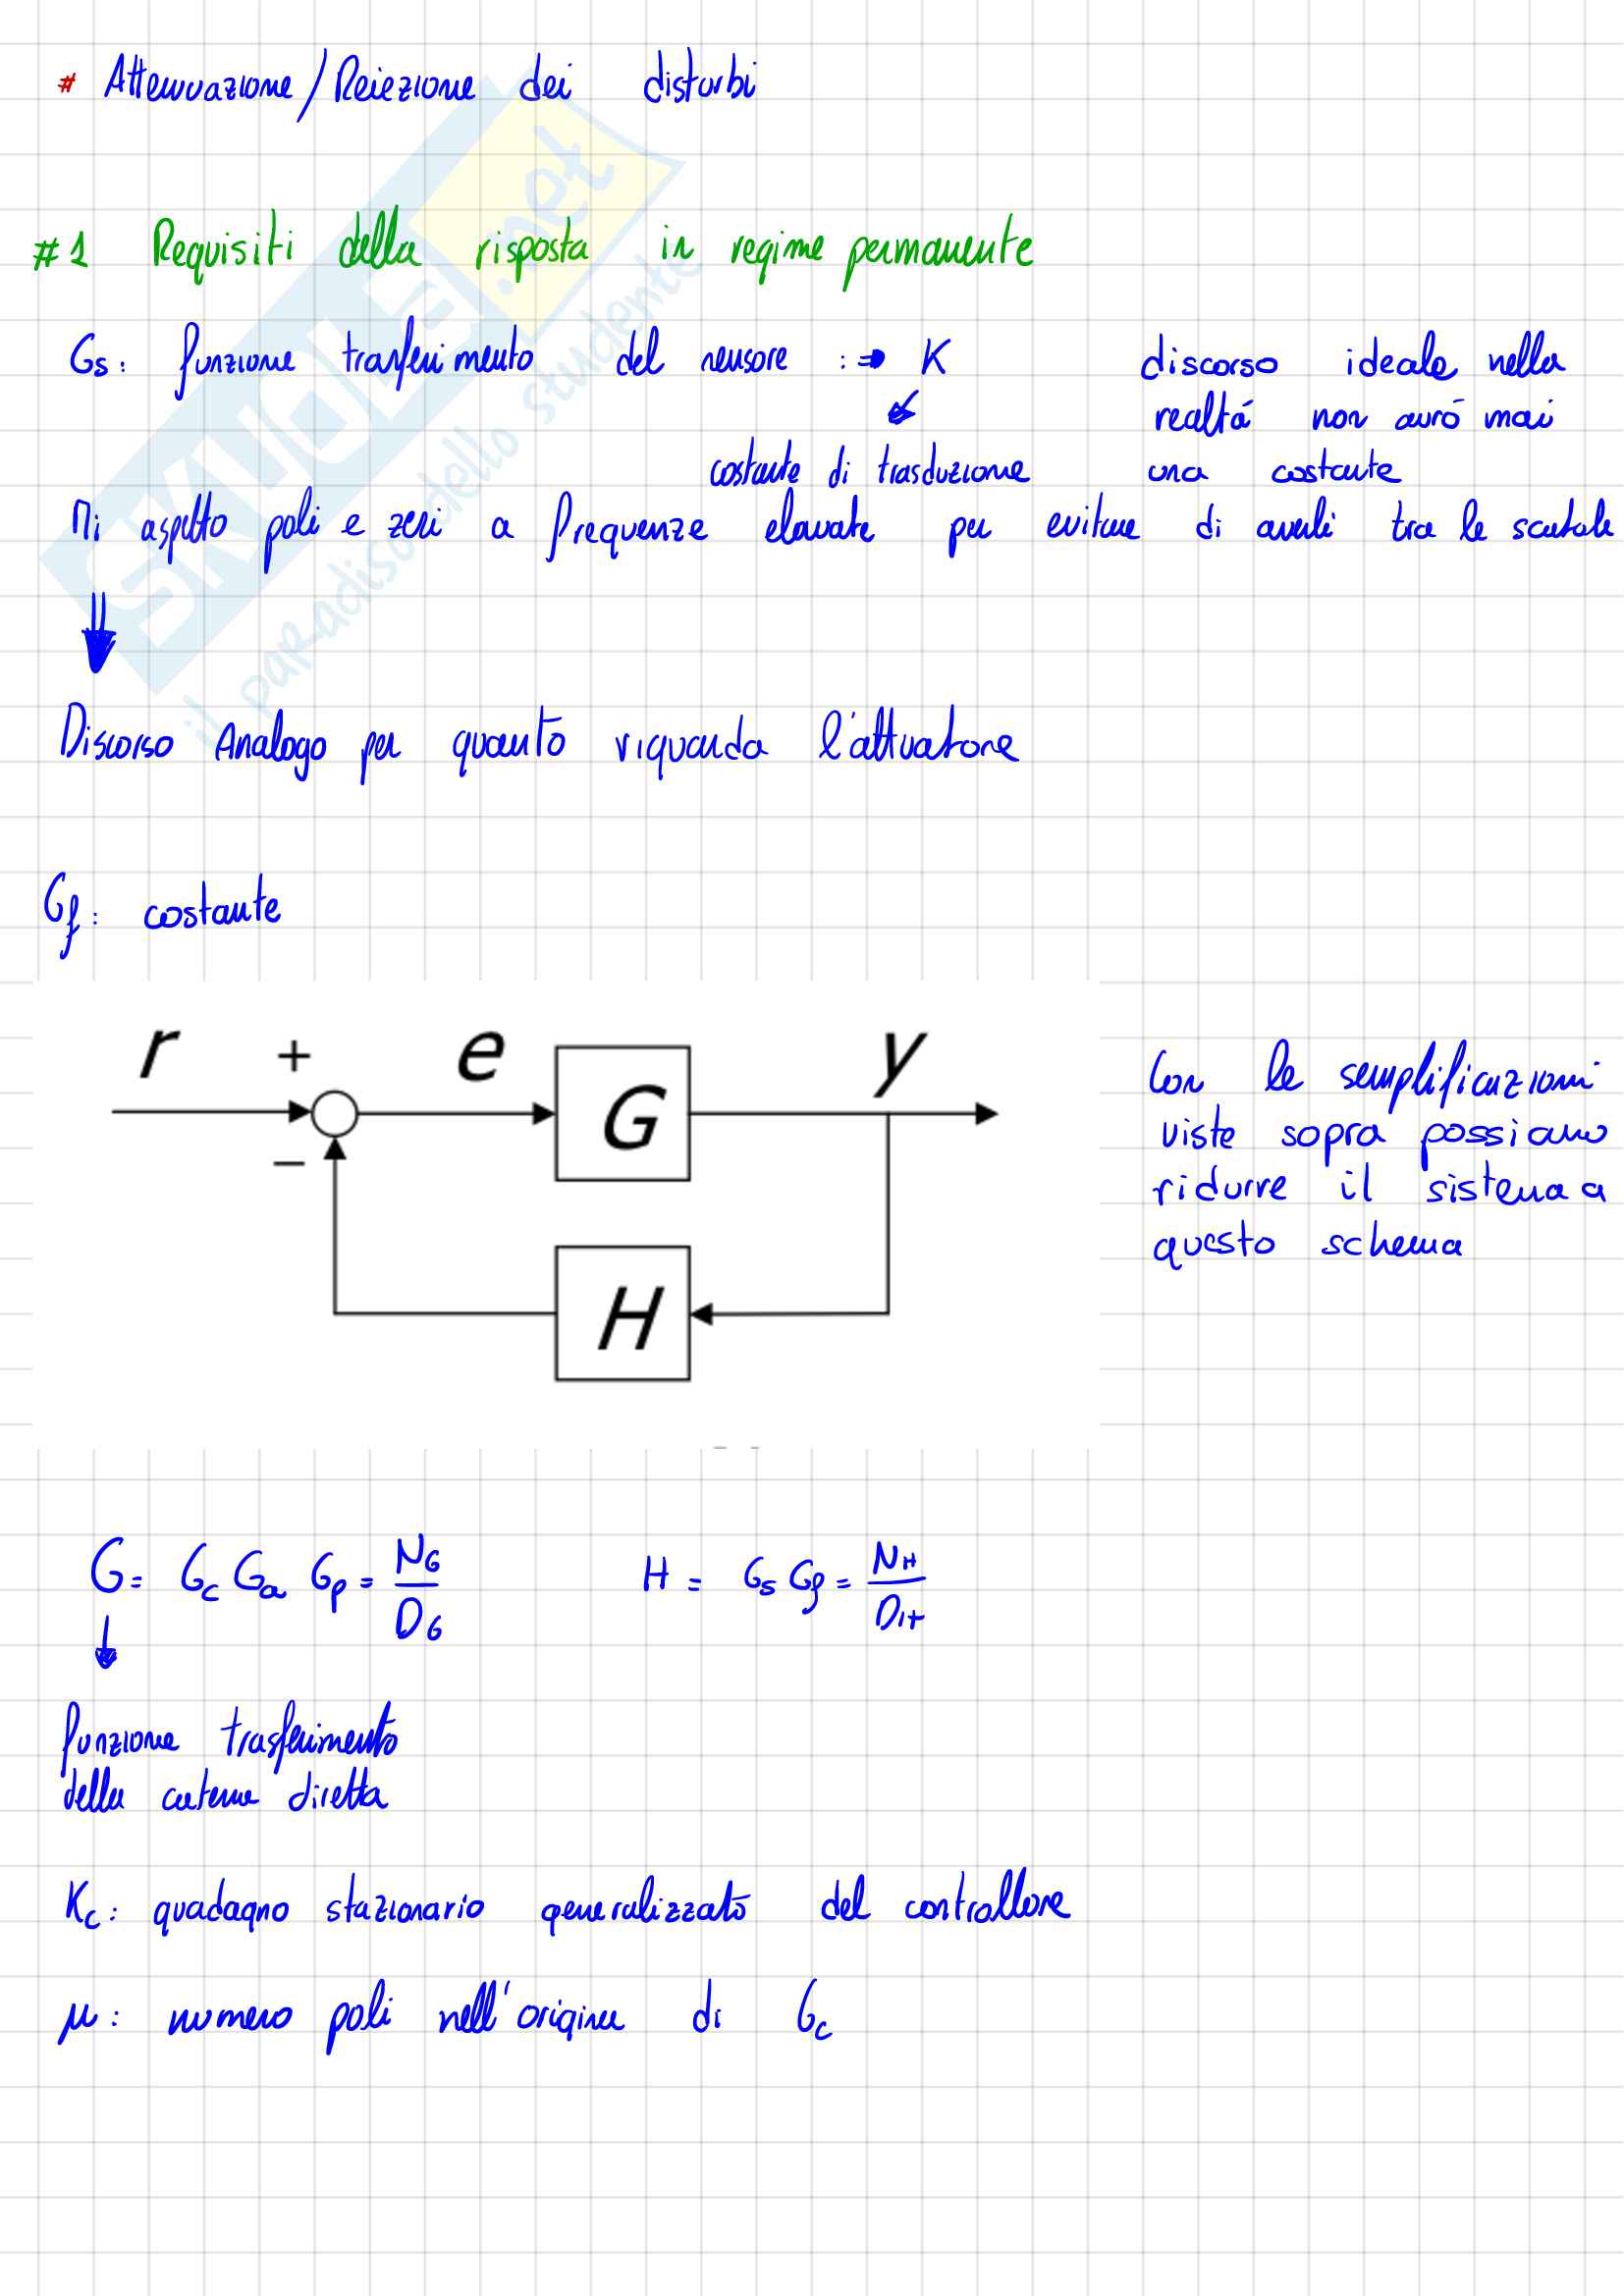 # Attenuazione/Reiezione dei disturbi
#1 Requisiti della risposta in regime permanente
Gs: funzione trasferimento del sensore :⇒ K
discorso ideale nella
realtá non avró mai
una costante
costante di trasduzione
Mi aspetto poli e zeri a frequenze elevate per evitare di averli tra le scatole
Discorso Analogo per quanto riguarda l'attuatore
Gf: costante
r + e G y
−
H
Con le semplificazioni
viste sopra possiamo
ridurre il sistema a
questo schema
G = Gc Ga Gp = NG/DG H = Gs Gf = NH/DH
funzione trasferimento
della catena diretta
Kc: guadagno stazionario generalizzato del controllore
μ: numero poli nell'origine di Gc
SKUOLA.net
il paradiso dello studente